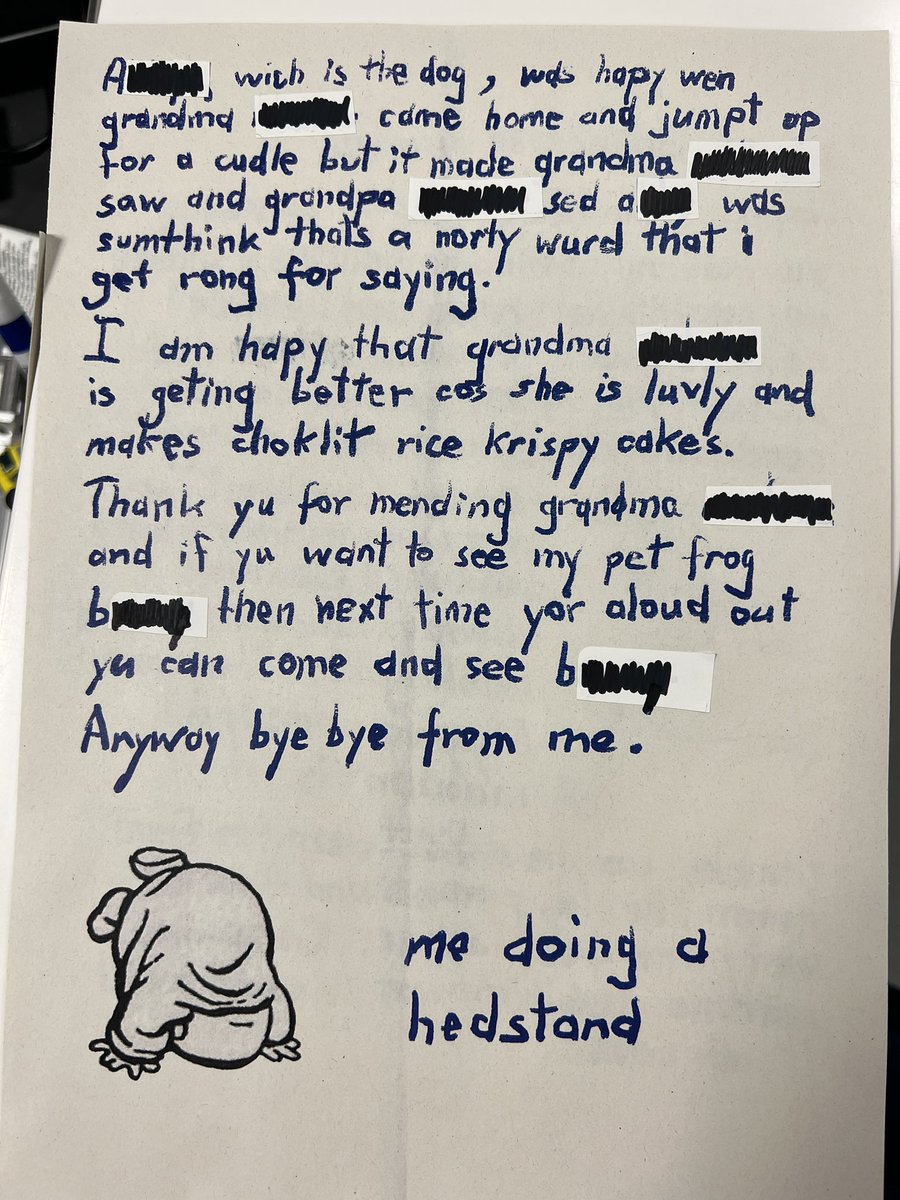 A , wich is the dog, was hapy wen
grandma came home and jumpt up
for a cudle but it made grandma
saw and grandpa sed a was
sumthink thats a norty wurd that i
get rong for saying.
I am hapy that grandma
is geting better cos she is luvly and
makes choklit rice krispy cakes.
Thank yu for mending grandma
and if yu want to see my pet frog
b then next time yor aloud out
yu can come and see b
Anyway bye bye from me.
me doing a
hedstand